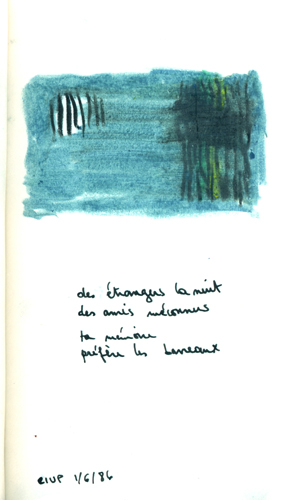 des étrangers la nuit
des amis méconnus
ta mémoire
préfère les barreaux
CIUP 1/6/86